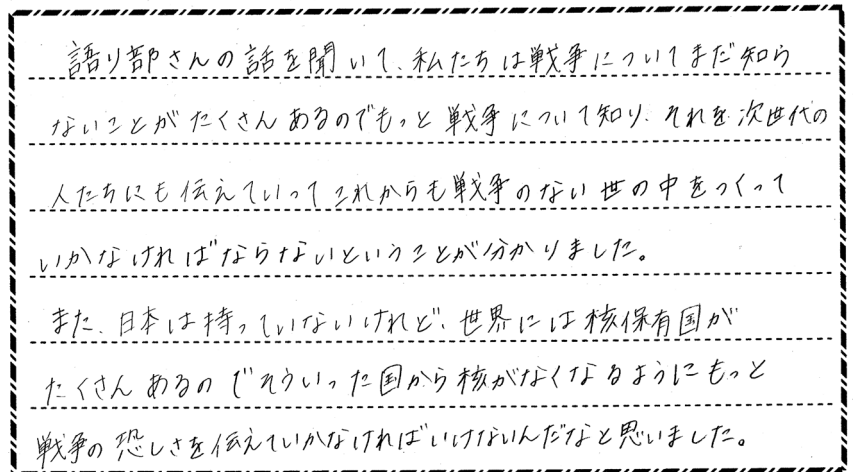 語り部さんの話を聞いて、私たちは戦争についてまだ知ら
ないことがたくさんあるのでもっと戦争について知り、それを次世代の
人たちにも伝えていってこれからも戦争のない世の中をつくって
いかなければならないということが分かりました。
また、日本は持っていないけれど、世界には核保有国が
たくさんあるのでそういった国から核がなくなるようにもっと
戦争の恐しさを伝えていかなければいけないんだなと思いました。